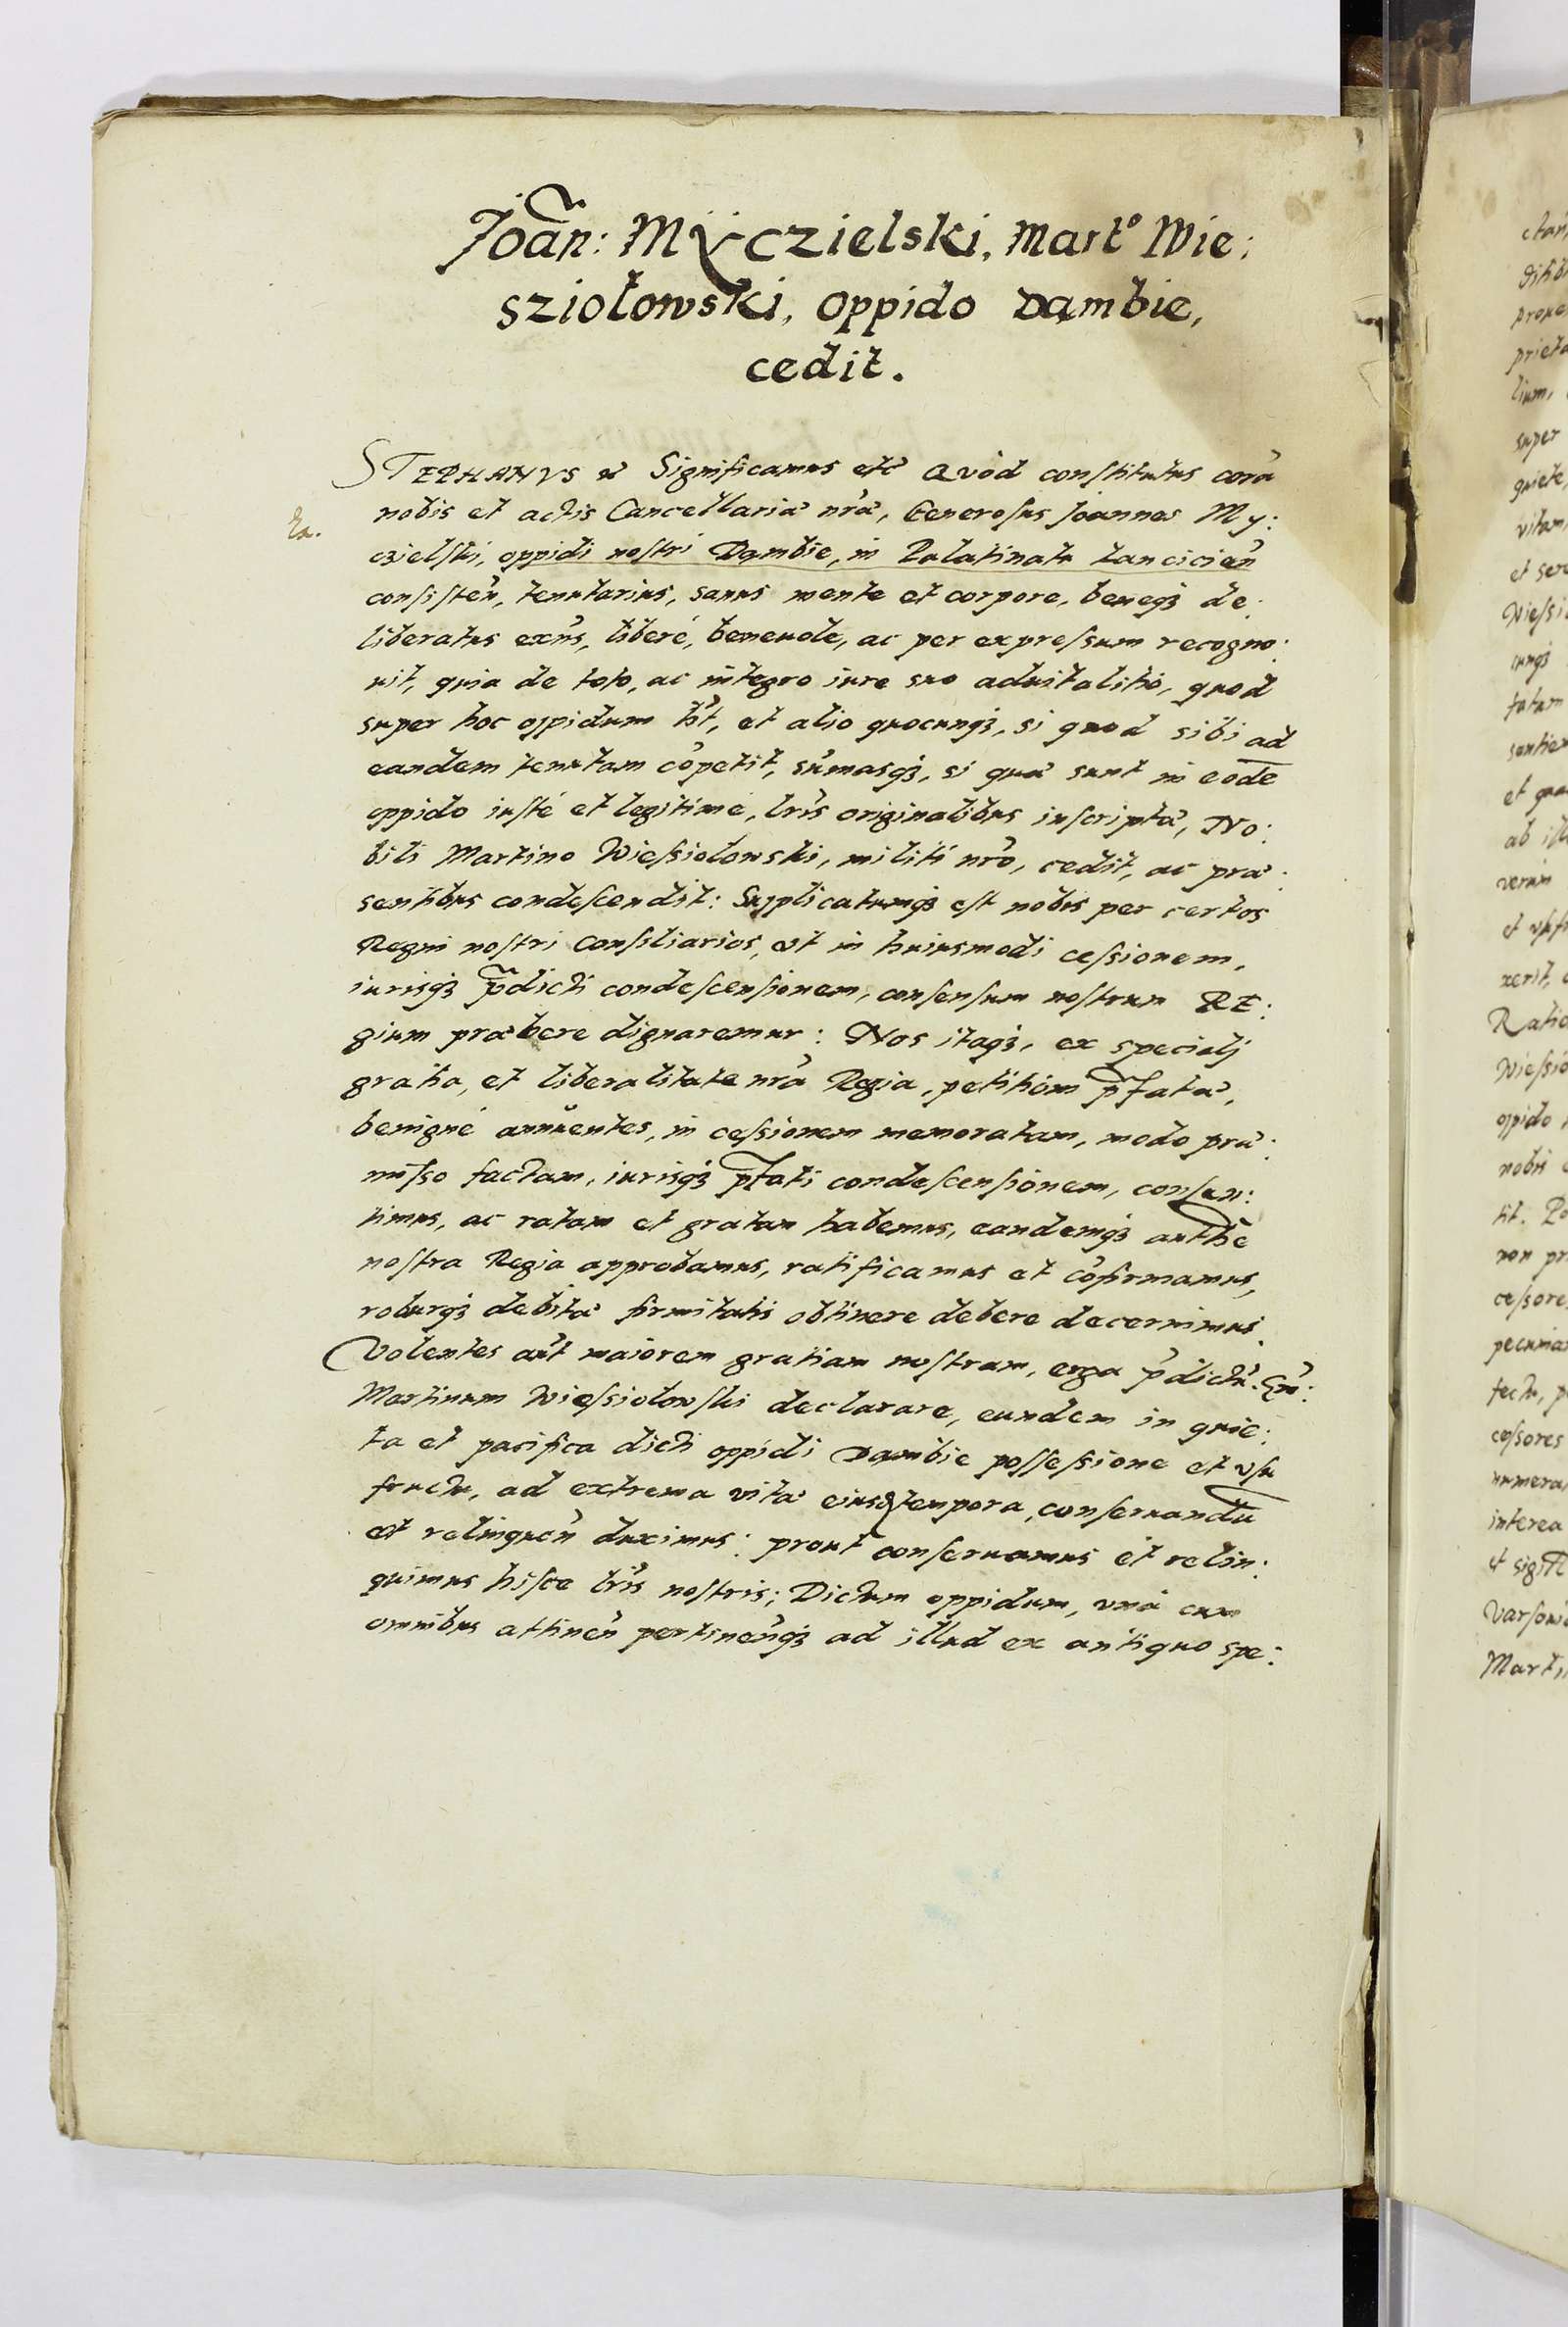 Joan̄: Mÿczielski, Mart° Wie:
sziołowski, oppido Dąmbie,
cedit.
STEPHANVS &c Significamus etc̃ Quòd constitutus corã
nobis et actis Cancellariæ nr̃æ, Generosus Joannes My:
czielski, oppidi nostri Dąmbie, in Palatinatu Lancicieñ
consisteñ, tenutarius, sanus mente et corpore, beneqȝ de:
liberatus exñs, liberè, beneuole, ac per expressum recogno:
uit, quia de toto, ac integro iure suo aduitalitio, quod
super hoc oppidum ht̃, et alio quocunqȝ, si quod sibi ad
eandem tenutam cõpetit, sũmasqȝ, si quæ sunt in eodē
oppido iustè et legitimè, lr̃is originalibus inscriptæ, No:
bili Martino Wiessiolowski, militi nr̃o, cedit, ac præ:
sentibus condescendit: Supplicatumqȝ est nobis per certos
Regni nostri Consiliarios, vt in huiusmodi cessionem,
iurisqȝ p̃dicti condescensionem, consensum nostrum RE:
gium præbere dignaremur: Nos itaqȝ, ex specialj
gratia, et liberalitate nr̃a Regia, petitiõni p̃fatæ,
benignè annuentes, in cessionem memoratam, modo præ:
misso factam, iurisqȝ p̃fati condescensionem, consen:
timus, ac ratam et gratam habemus, eandemqȝ authē
nostra Regia approbamus, ratificamus et cõfirmamus,
roburqȝ debitæ firmitatis obtinere debere decernimus.
Volentes aũt maiorem gratiam nostram, erga p̃dictũ Gñ:
Martinum Wiessiolowski declarare, eundem in quie:
ta et pacifica dicti oppidi Dąmbie possessione et vsu
fructu, ad extrema vitæ eius tempora, conseruandū
et relinqueñ duximus: prout conseruamus et relin:
quimus hisce lr̃is nostris; Dictum oppidum, vnà cum
omnibus attineñ pertineñqȝ ad illud ex antiquo spe: